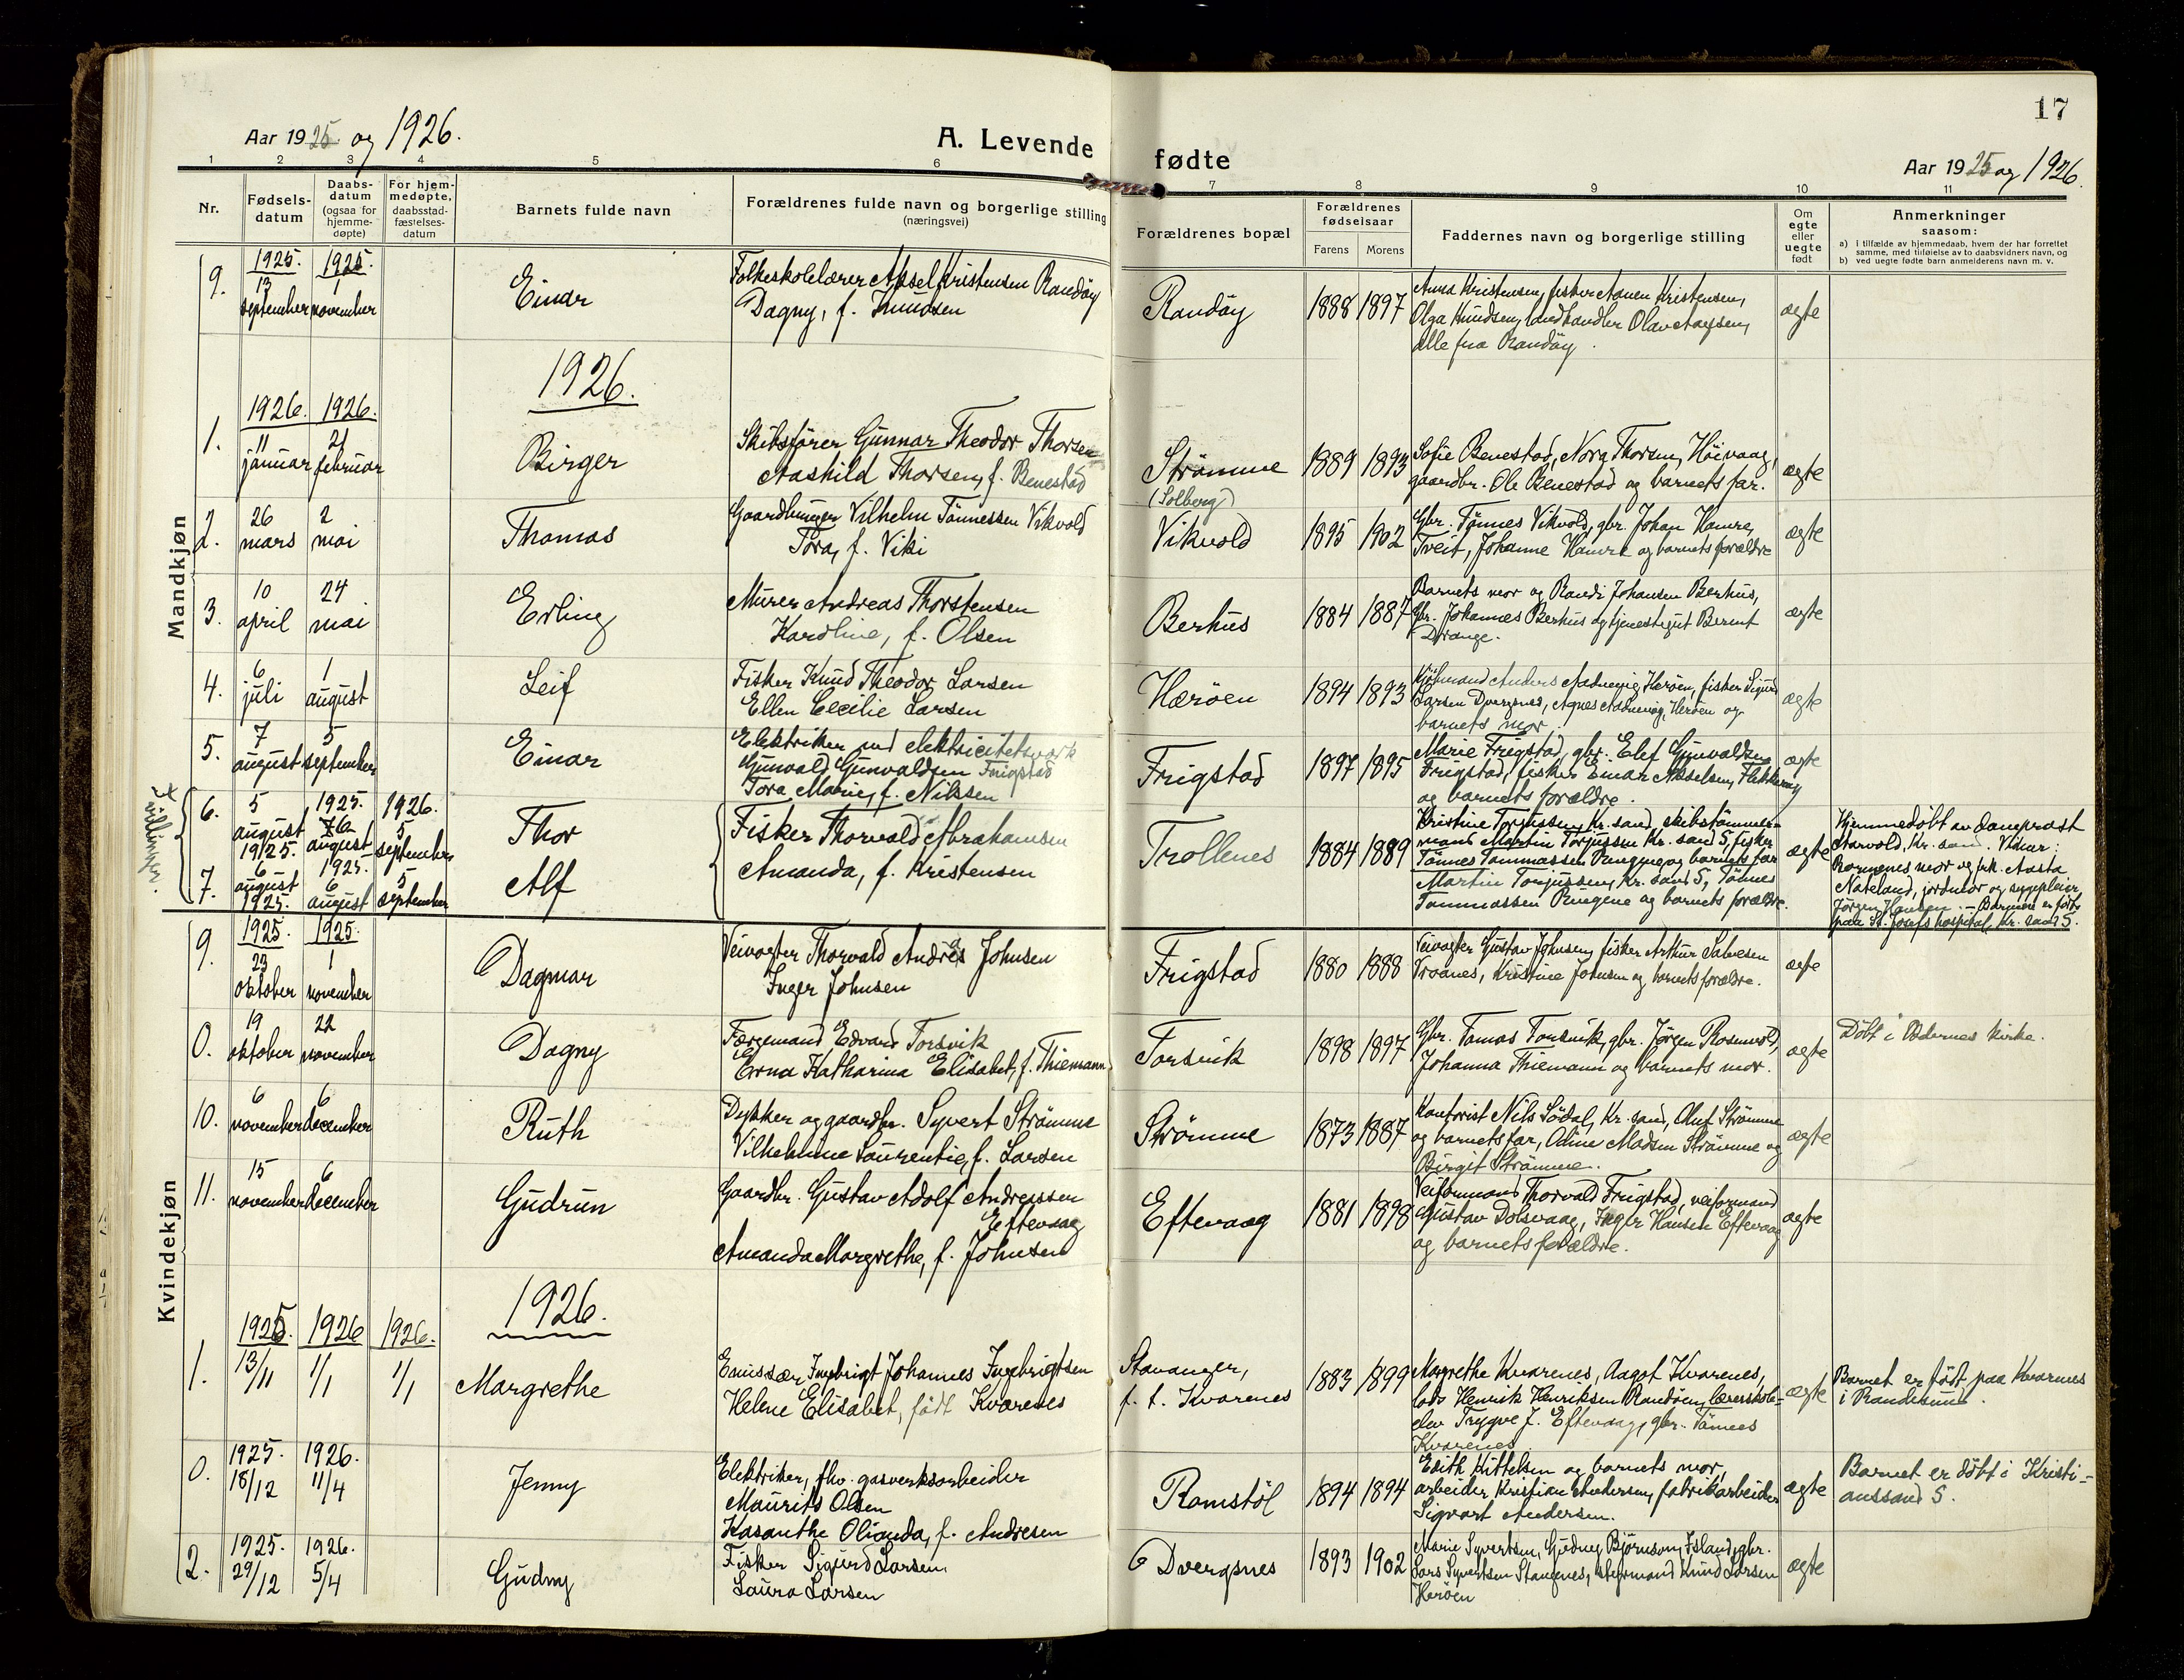 17
Aar 1925 og 1926.
A. Levende fødte
Aar 1925 og 1926.
1 2 3 4 5 6 7 8 9 10 11
Nr.
Fødsels-
datum
Daabs-
datum
(ogsaa for
hjemme-
døpte)
For hjem-
medøpte,
daabsstad-
fæstelses-
datum
Barnets fulde navn
Forældrenes fulde navn og borgerlige stilling
(næringsvei)
Forældrenes bopæl
Forældrenes
fødselsaar
Farens Morens
Faddernes navn og borgerlige stilling
Om
egte
eller
uegte
født
Anmerkninger
saasom:
a) i tilfælde av hjemmedaab, hvem der har forrettet
samme, med tilføielse av to daabsvidners navn, og
b) ved uegte fødte barn anmelderens navn m. v.
Mandkjøn
9.
1925. 1925.
13 1
september november
Einar
Folkeskolelærer Aksel Kristensen Randøy
Dagny, f. Knudsen
Randøy
1888 1897
Anna Kristensen, fisker Aanen Kristensen,
Olga Knudsen, landhandler Olav Aasen,
alle fra Randøy.
ægte
1926.
1926. 1926.
1.
11 21
januar februar
Birger
Skibsfører Gunnar Theodor Thorsen
Aashild Thorsen, f. Benestad
Strømme
(Solberg)
1889 1893
Sofie Benestad, Nora Thorsen, Høivaag,
gaardbr. Ole Benestad og barnets far.
ægte
2.
26 2
mars mai
Thomas
Gaardbruger Vilhelm Tønnessen Vikvold
Tora, f. Viki
Vikvold
1895 1902
Gbr. Tønnes Vikvold, gbr. Johan Hamre,
Tveit, Johanne Hamre og barnets forældre
ægte
3.
10 24
april mai
Erling
Murer Andreas Thorstensen
Karoline, f. Olsen
Berhus
1884 1887
Barnets mor og Randi Johansen Berhus,
gbr. Johannes Berhus og tjenestegut Berent
Drange.
ægte
4.
6 1
juli august
Leif
Fisker Knud Theodor Larsen
Ellen Cecilie Larsen
Herøen
1894 1893
Anders Aadnevig Herøen, fisker Sigurd
Larsen Dvergsnes, Agnes Aadnevig, Herøen og
barnets mor.
ægte
5.
7 5
august september
Einar
Elektriker ved elektricitetsverk
Gunvald Gunvaldsen Frigstad
Tora Marie, f. Nilssen
Frigstad
1897 1895
Marie Frigstad, gbr. Elef Gunvaldsen
Frigstad, fisker Einar Akselsen, Flekkerøy
og barnets forældre.
ægte
Tvillinger.
6.
5 1925. 1926.
august 6 5
1925. august september
Thor
Fisker Thorvald Abrahamsen
Amanda, f. Kristensen
Trollenes
1884 1889
Kristine Torjussen, Kr. sand, skibstømmer-
mand Martin Torjussen Kr. sand S, fisker
Tønnes Tommassen Ringene og barnets far
ægte
Hjemmedøbt av domprost
Aarvold, Kr. sand. Vidner:
Barnenes mor og frk. Aasta
Nateland, jordmor og sygepleier,
Jørgen Hansen. – Barnene er født
paa St. Josefs hospital, Kr. sand S.
7.
6 1925. 5
august 6
1925. august september
Alf
Martin Torjussen, Kr. sand S, Tønnes
Tommassen Ringene og barnets forældre.
Kvindekjøn
9.
1925. 1925.
23 1
oktober november
Dagmar
Veivogter Thorvald Andrés Johnsen
Inger Johnsen
Frigstad
1880 1888
Veivogter Gustav Johnsen, fisker Arthur Salvesen
Kristine Johnsen og barnets forældre.
ægte
0.
19 22
oktober november
Dagny
Færgemand Edvard Torsvik
Erna Katharina Elisabet, f. Thiemann
Torsvik
1898 1897
Gbr. Tomas Torsvik, gbr. Jørgen Rosenvold,
Johanna Thiemann og barnets mor.
ægte
Døbt i Oddernes kirke.
10.
6 6
november december
Ruth
Dykker og gaardbr. Syvert Strømme
Vilhelmine Laurentie, f. Larsen
Strømme
1873 1887
Kontorist Nils Sødal, Kr. sand, Oluf Strømme
og barnets far, Odine Madsen Strømme og
Birgit Strømme.
ægte
11.
15 6
november december
Gudrun
Gaardbr. Gustav Adolf Andreassen
Eftevaag
Amanda Margrethe, f. Johnsen
Eftevaag
1881 1898
Veiformand Thorvald Frigstad, veiformand
Gustav Dolsvaag, Inger Hansen Eftevaag
og barnets forældre.
ægte
1926.
1925. 1926 1926.
1.
13/11 1/1 1/1
Margrethe
Emissær Ingebrigt Johannes Ingebrigtsen
Helene Elisabet, født Kvarenes
Stavanger,
f. t. Kvarenes
1883 1899
Margrethe Kvarenes, Aagot Kvarenes,
lods Henrik Henriksen Randøen, lærerskole-
elev Trygve J. Eftevaag, gbr. Tønnes
Kvarenes
ægte
Barnet er født paa Kvarenes
i Randesund.
0.
1925. 1926.
18/12 11/4
Jenny
Elektriker, fhv. gasverksarbeider
Maurits Olsen
Kasanthe Olianda, f. Andresen
Romstøl
1894 1894
Edith Kittelsen og barnets mor,
arbeider Kristian Andersen, fabrikarbeider
Sigvart Andersen.
ægte
Barnet er døbt i Kristi-
anssand S.
2.
1925. 1926.
29/12 5/4
Gudny
Fisker Sigurd Larsen
Laura Larsen
Dvergsnes
1893 1902
Marie Syvertsen, Gudney Bjørnson, Island, gbr.
Lars Syvertsen Stangenes, styrmand Knud Larsen
Herøen
ægte